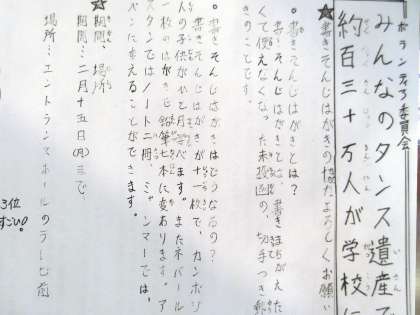 ボランティア委員会
みんなのタンス遺産で
約百三十万人が学校に
☆書きそんじはがきの協力よろしくお願い
○書きそんじはがきとは?
書きそんじはがきとは、書きまちがえた
くて使えなくなった未投函の、切手つき郵
のことです。
○書きそんじはがきはどうなるの?
書きそんじはがきが十一枚で、カンボジ
人の子供が一ヶ月学べます。またネパール
一枚のはがきが鉛筆七本に変わります。ア
スタンではノート二冊、ミャンマーでは、
ペンに変えることができます。
☆期間、場所
期間…二月十五日(月)まで
場所…エントランスホールのテレビ前
3位
すごい!